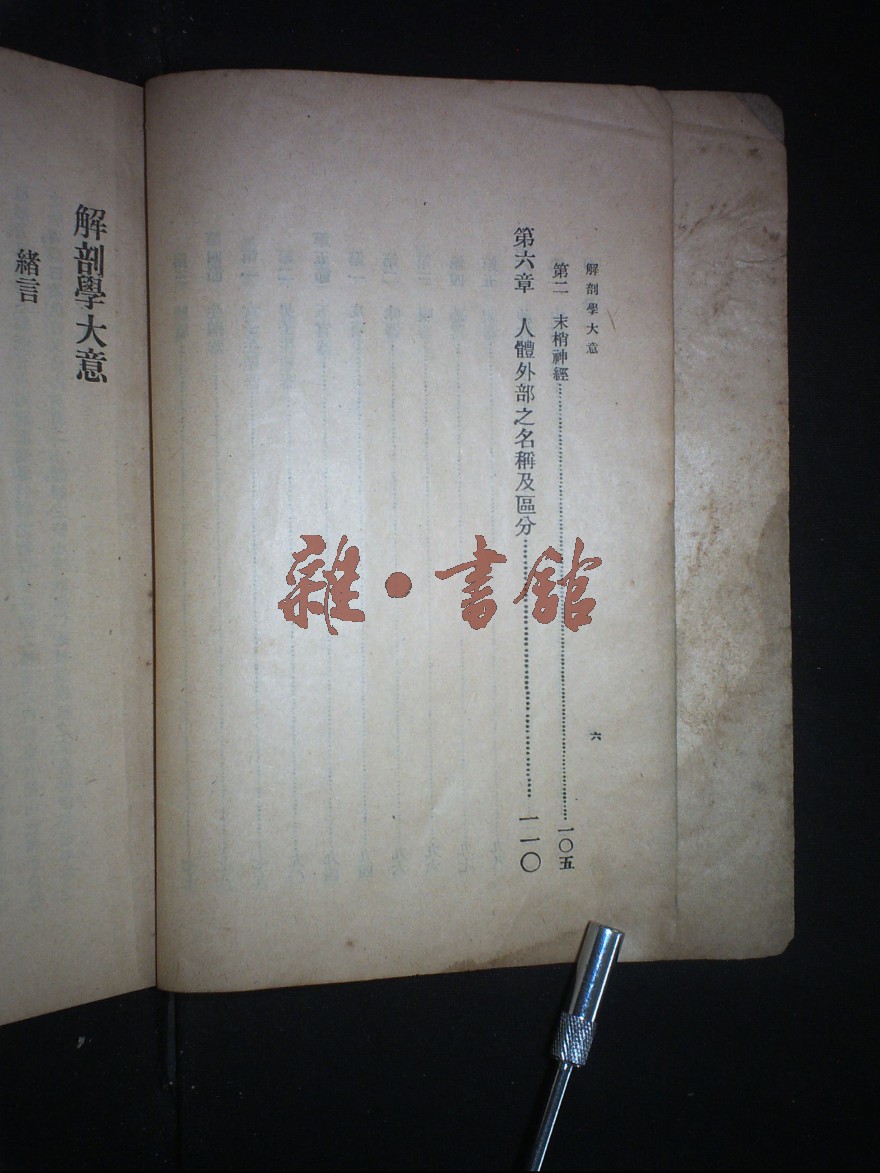 解剖學大意
六
第二 末梢神經 一〇五
第六章 人體外部之名稱及區分 一一〇
解剖學大意
緒言
雜•書館